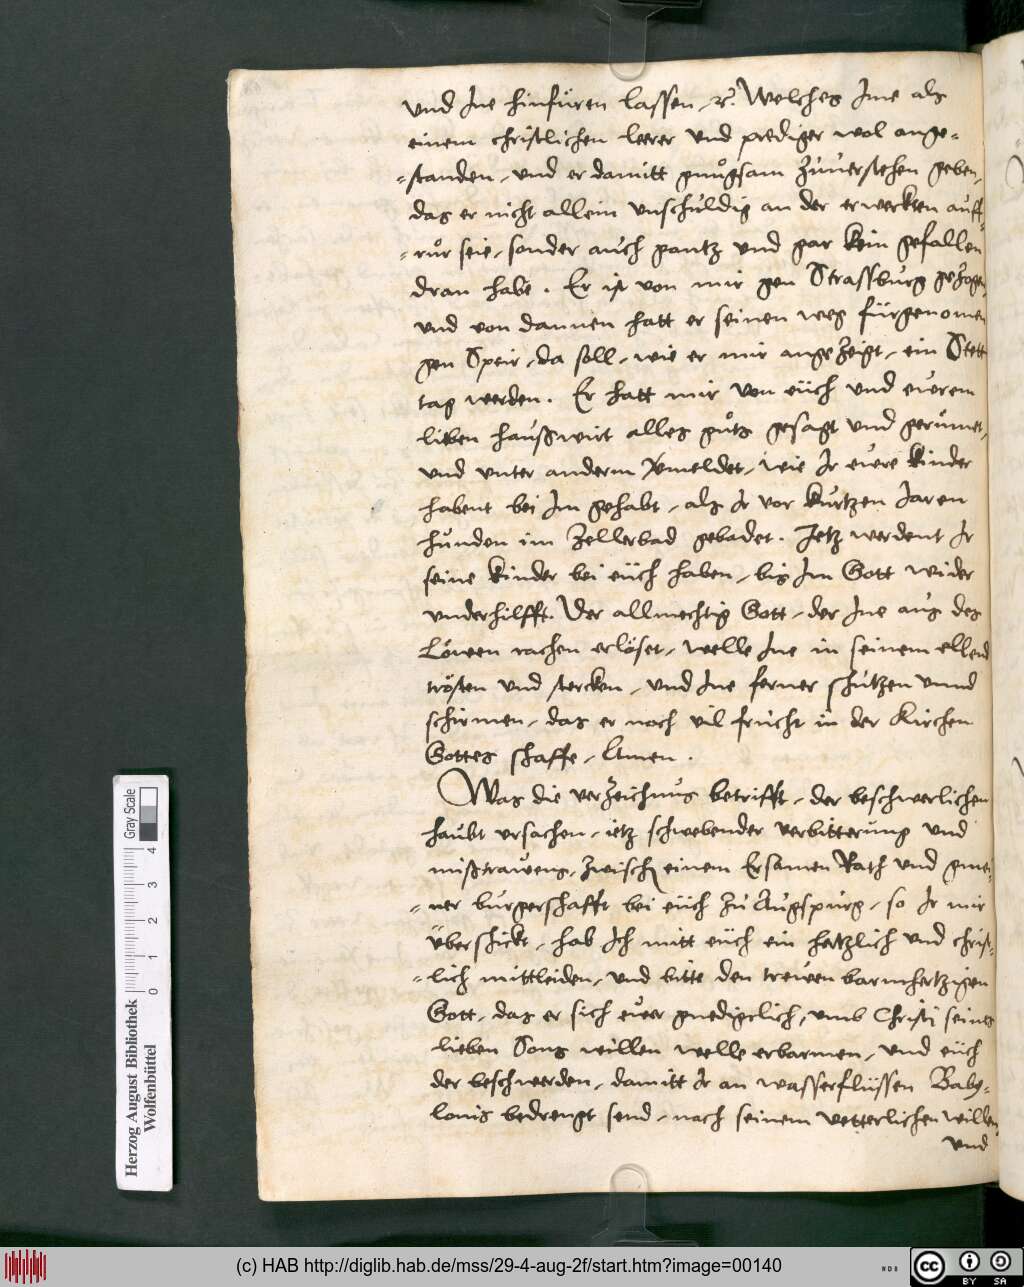 und Ine hinfüren lassen, ꝛc. Welches Ime als
einem christlichen leerer und prediger wol ange-
-standen, und er damitt gnůgsam zůuerstehen geben,
das er nicht allein unschuldig an der erweckten auff-
-růr seie, sonder auch gantz und gar kein gefallen
dran habe. Er ist von mir gen Strassburg gezogen,
und von dannen hatt er seinen weg fürgenomen
gen Speir, da soll, wie er mir angezeigt, ein Stett
tag werden. Er hatt mir von eüch und ewerem
lieben haußwirt alles gůts gesagt und gerůmet,
und unter anderm vermeldet, wie Ir ewre kinder
habent bei Im gehabt, als Ir vor kurtzen Iaren
hunden im Zellerbad gebadet. Ietz werdent Ir
seine kinder bei eüch haben, bis Im Gott wider
underhilfft. Der allmechtig Gott, der Ine aus des
Löwen rachen erlöset, welle Ine in seinem ellend
trösten und stercken, und Ine ferner schützen unnd
schirmen, das er noch vil frücht in der Kirchen
Gottes schaffe, Amen.
Was die verzeichnus betrifft, der beschwerlichen
haubt ursachen, ietz schwebender verbitterung und
mißtrawens, zwischen einem Ersamen Rath und gmei-
-ner burgerschafft bei eüch zů Augspurg, so Ir mir
überschickt, hab Ich mitt eüch ein hertzlich und christ-
-lich mittleiden, und bitte den trewen barmhertzigen
Gott, das er sich ewer gnedigclich, umb Christi seines
lieben Sons willen welle erbarmen, und eüch
der beschwerden, damitt Ir an wasserflüssen Baby-
lonis bedrengt send, nach seinem vetterlichen willen
und
Gray Scale
0 1 2 3 4
Herzog August Bibliothek
Wolfenbüttel
(c) HAB http://diglib.hab.de/mss/29-4-aug-2f/start.htm?image=00140
WDB
cc BY SA